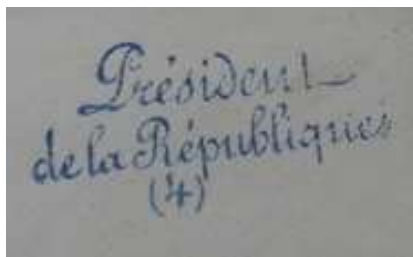 Président
de la Républiques
(4)